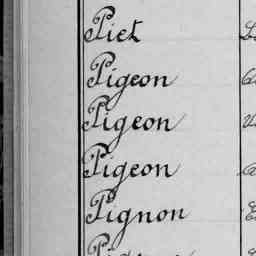 Piet
Pigeon
Pigeon
Pigeon
Pignon